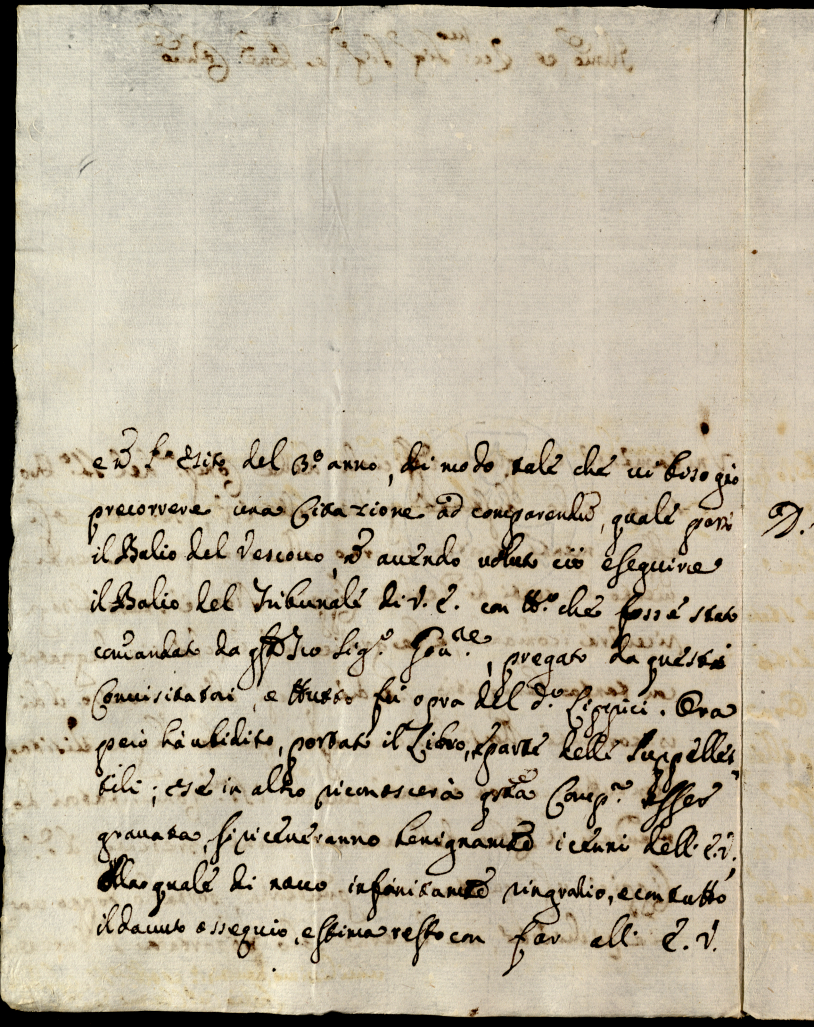 del 3.º anno, di modo talé ché ui bisogiò
precorrere una Citazione ad comparendũ, qualé però
il Balio del Vescouo, auendo uoluto ciò eseguire
il Balio del Tribunalé di V. E. con ché fossé stato
comandato da Sig.º , pregato da questi
Conuisitatori, e tutto fù opra del d.º Lippici. Ora
però hà ubidito, portato il Libro, é parté dellé suppellet
tili; é sé in altro riconoscerà Comp.ª esser
grauata, si riceueranno benignamté i cenni dell' E. V.
Alla qualé di nouo infinitamté ringratio, e con tutto
il douuto ossequio, e stima resto con far all' E. V.
D.